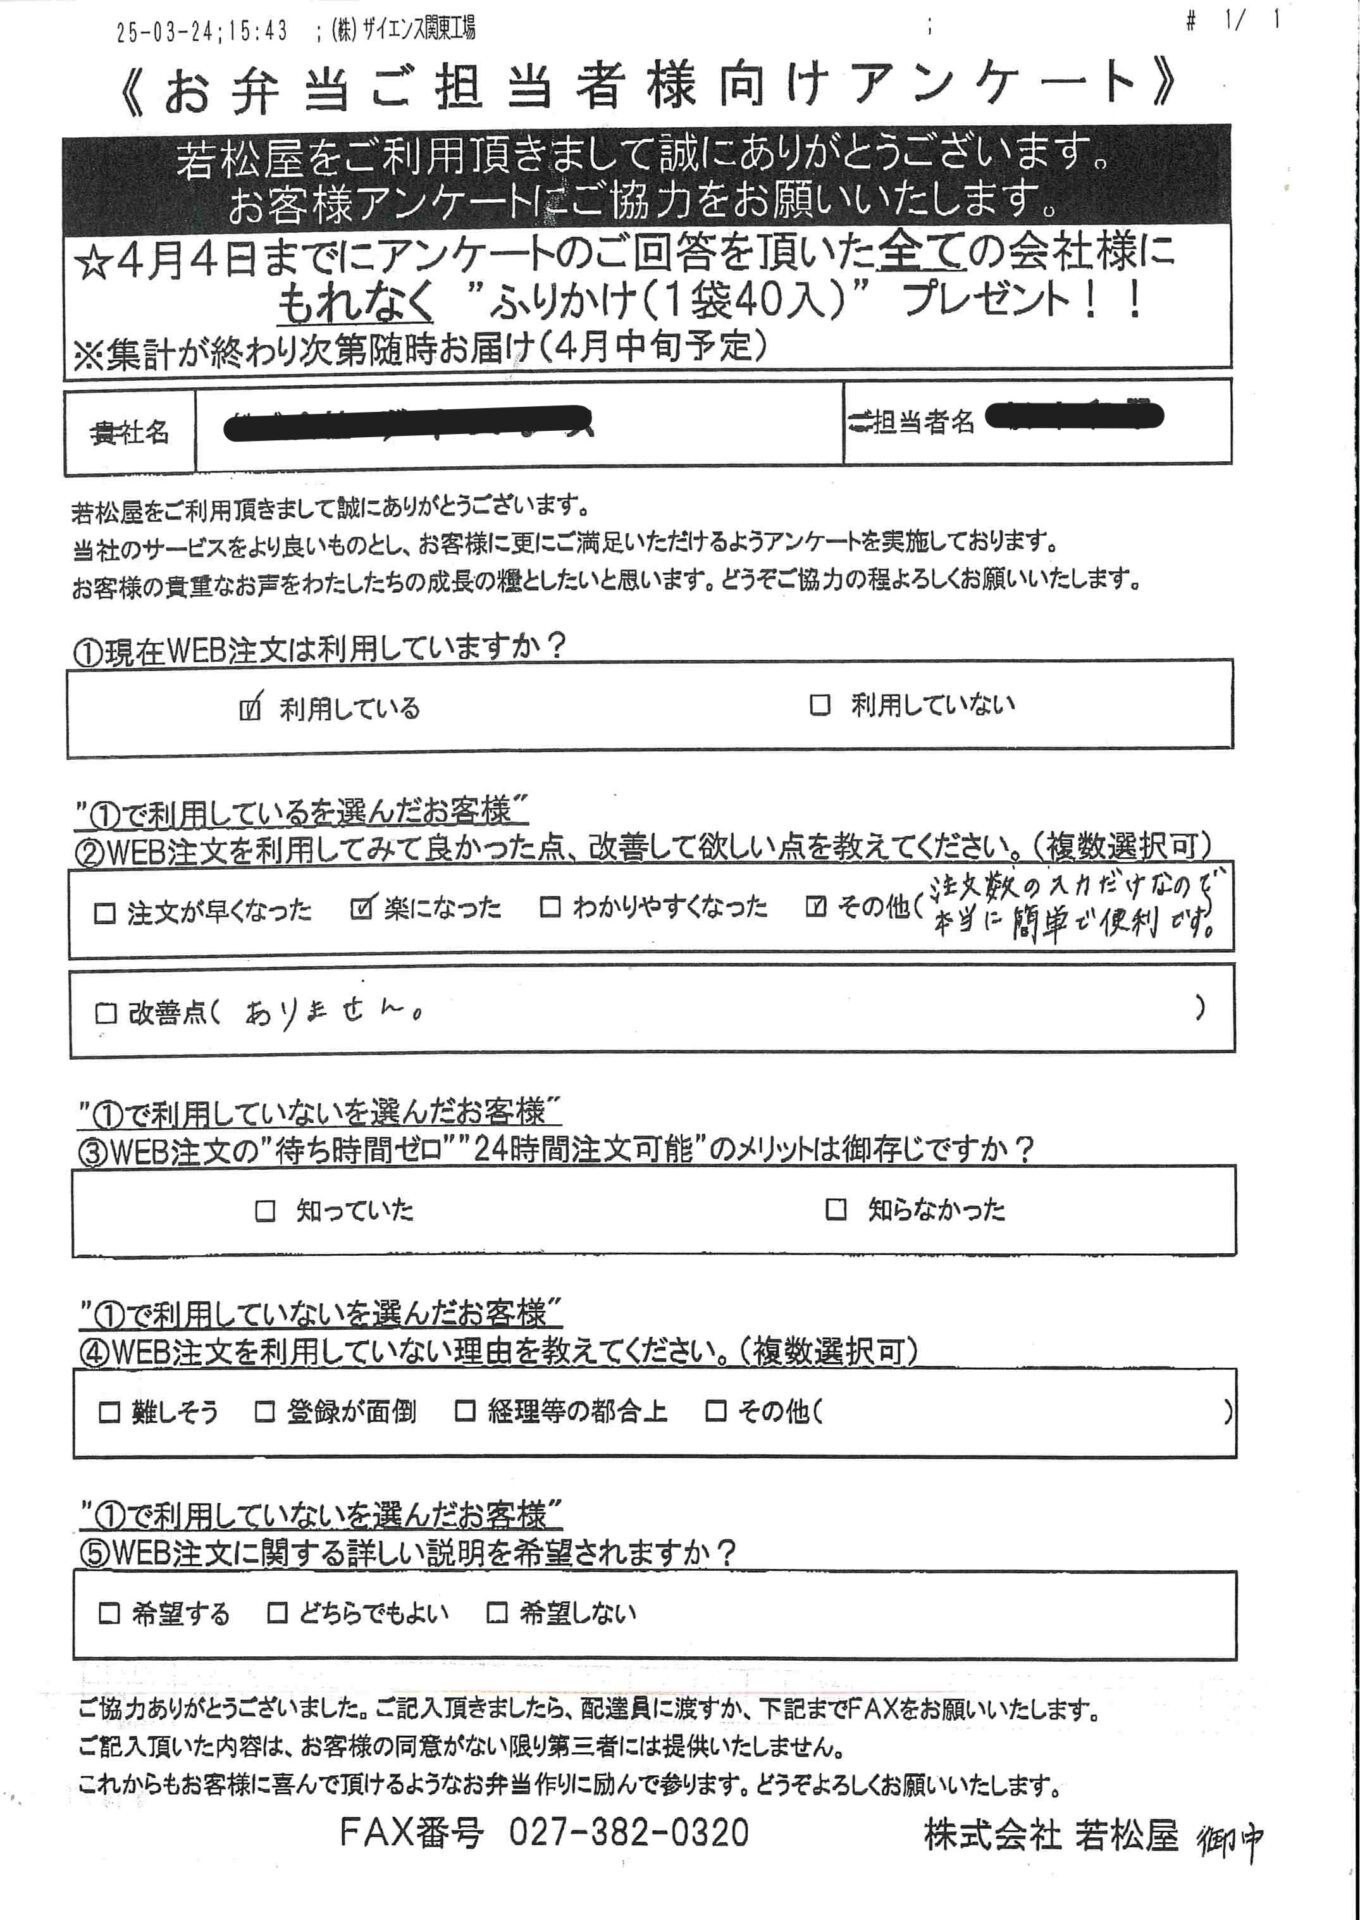 25-03-24;15:43 ;(株)ザイエンス関東工場 ; # 1/ 1
《お弁当ご担当者様向けアンケート》
若松屋をご利用頂きまして誠にありがとうございます。
お客様アンケートにご協力をお願いいたします。
☆4月4日までにアンケートのご回答を頂いた全ての会社様に
もれなく "ふりかけ(1袋40入)" プレゼント!!
※集計が終わり次第随時お届け(4月中旬予定)
貴社名 ご担当者名
若松屋をご利用頂きまして誠にありがとうございます。
当社のサービスをより良いものとし、お客様に更にご満足いただけるようアンケートを実施しております。
お客様の貴重なお声をわたしたちの成長の糧としたいと思います。どうぞご協力の程よろしくお願いいたします。
①現在WEB注文は利用していますか?
☑ 利用している □ 利用していない
"①で利用しているを選んだお客様"
②WEB注文を利用してみて良かった点、改善して欲しい点を教えてください。(複数選択可)
□ 注文が早くなった ☑ 楽になった □ わかりやすくなった ☑ その他( 注文数の入力だけなので
本当に簡単で便利です。)
□ 改善点( ありません。 )
"①で利用していないを選んだお客様"
③WEB注文の"待ち時間ゼロ""24時間注文可能"のメリットは御存じですか?
□ 知っていた □ 知らなかった
"①で利用していないを選んだお客様"
④WEB注文を利用していない理由を教えてください。(複数選択可)
□ 難しそう □ 登録が面倒 □ 経理等の都合上 □ その他( )
"①で利用していないを選んだお客様"
⑤WEB注文に関する詳しい説明を希望されますか?
□ 希望する □ どちらでもよい □ 希望しない
ご協力ありがとうございました。ご記入頂きましたら、配達員に渡すか、下記までFAXをお願いいたします。
ご記入頂いた内容は、お客様の同意がない限り第三者には提供いたしません。
これからもお客様に喜んで頂けるようなお弁当作りに励んで参ります。どうぞよろしくお願いいたします。
FAX番号 027-382-0320 株式会社 若松屋 御中